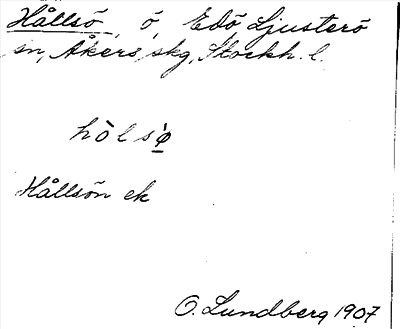 Hållsö, ö, Edö, Ljusterö
sn, Åkers skg, Stockh. l.
hòlsø̀
Hållsön ek
O. Lundberg 1907